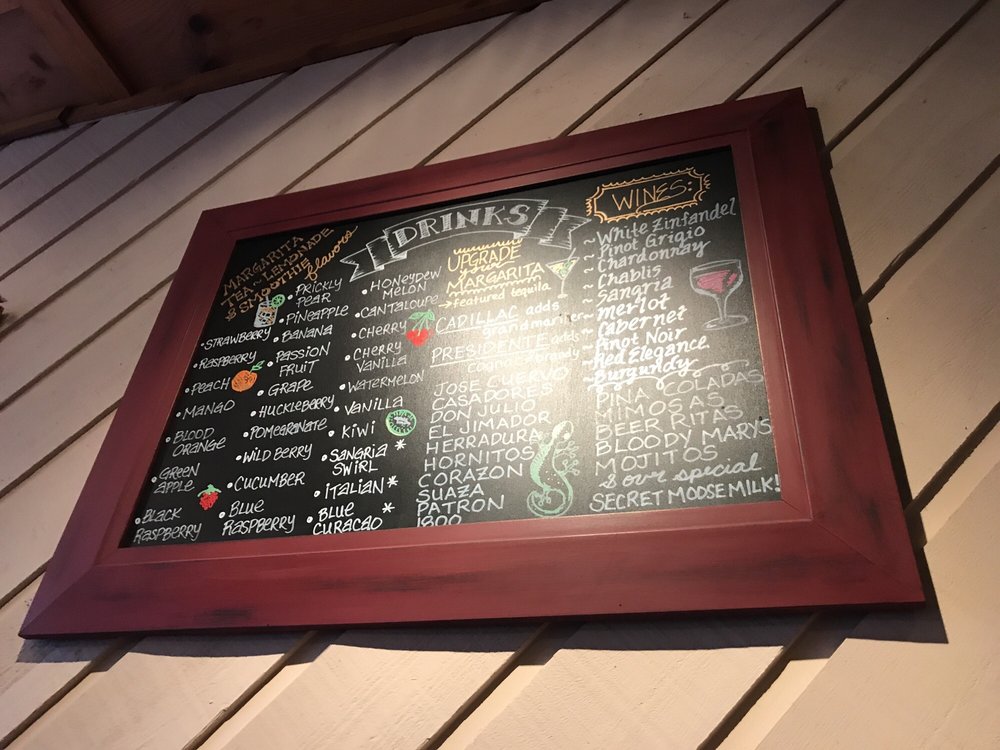 DRINKS
MARGARITA
TEA ~ LEMONADE
& SMOOTHIE flavors
• STRAWBERRY
• RASPBERRY
• PEACH
• MANGO
• BLOOD
ORANGE
• GREEN
APPLE
• BLACK
RASPBERRY
• PRICKLY
PEAR
• PINEAPPLE
• BANANA
• PASSION
FRUIT
• GRAPE
• HUCKLEBERRY
• POMEGRANATE
• WILD BERRY
• CUCUMBER
• BLUE
RASPBERRY
• HONEYDEW
MELON
• CANTALOUPE
• CHERRY
• CHERRY
VANILLA
• WATERMELON
• VANILLA
• KIWI
• SANGRIA *
SWIRL
• ITALIAN *
• BLUE *
CURACAO
UPGRADE
your
MARGARITA
→ featured tequila
CADILLAC adds
grandmarnier
PRESIDENTE adds
cognac brandy
JOSE CUERVO
CASADORES
DON JULIO
EL JIMADOR
HERRADURA
HORNITOS
CORAZON
SUAZA
PATRON
1800
WINES:
~ White Zinfandel
~ Pinot Grigio
~ Chardonnay
~ Chablis
~ Sangria
~ Merlot
~ Cabernet
~ Pinot Noir
~ Red Elegance
~ Burgundy
PINA COLADAS
MIMOSAS
BEER RITAS
BLOODY MARYS
MOJITOS
& our special
SECRET MOOSEMILK!